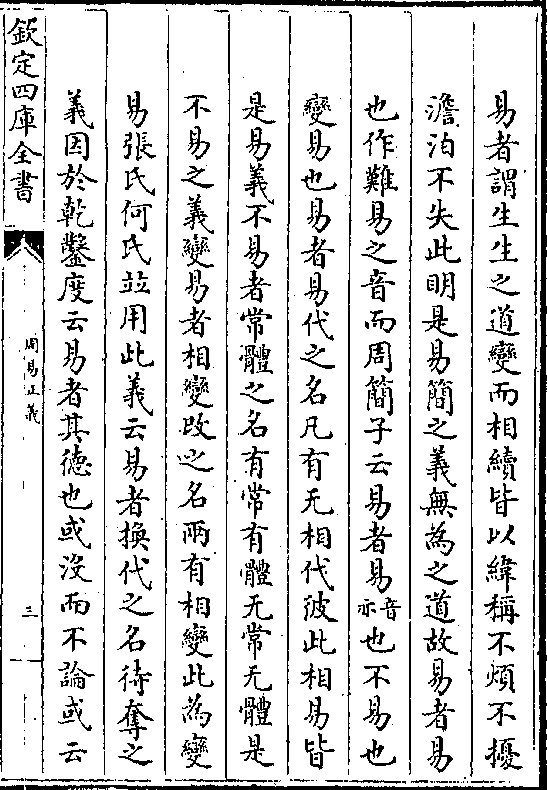 易者謂生生之道變而相續皆以緯稱不煩不擾
澹泊不失此明是易簡之義無為之道故易者易
也作難易之音而周簡子云易者易音亦也不易也
變易也易者易代之名凡有无相代彼此相易皆
是易義不易者常體之名有常有體无常无體是
不易之義變易者相變改之名兩有相變此為變
易張氏何氏並用此義云易者換代之名待奪之
義因於乾鑿度云易者其徳也或沒而不論或云
欽定四庫全書
周易正義
三